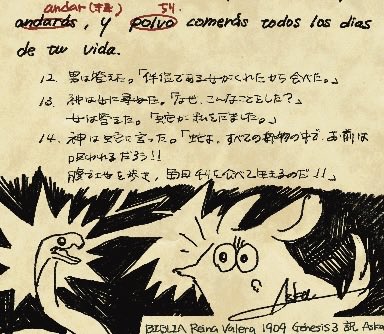 andar(歩く) 54.
andarás, y polvo comerás todos los días
de tu vida.
12. 男は答えた。「伴侶である女がくれたから食べた。」
13. 神は女に尋ねた。「なぜ、こんなことをした?」
女は答えた。「蛇が私をだました。」
14. 神は蛇に言った。「蛇よ、すべての動物の中で、お前は
呪われるだろう!!
腹で土を歩き、毎日 を食べて生きるのだ!!」
Aska
BIBLIA Reina Valera 1909 Génesis 3 訳 Aska